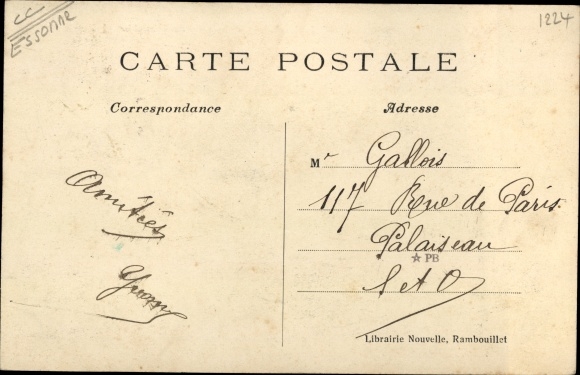 CC
ESSONNE
1224
CARTE POSTALE
Correspondance
Adresse
Mr Gallois
117 Rue de Paris
Palaiseau
☆ PB
S et O
Amitiés
Librairie Nouvelle, Rambouillet